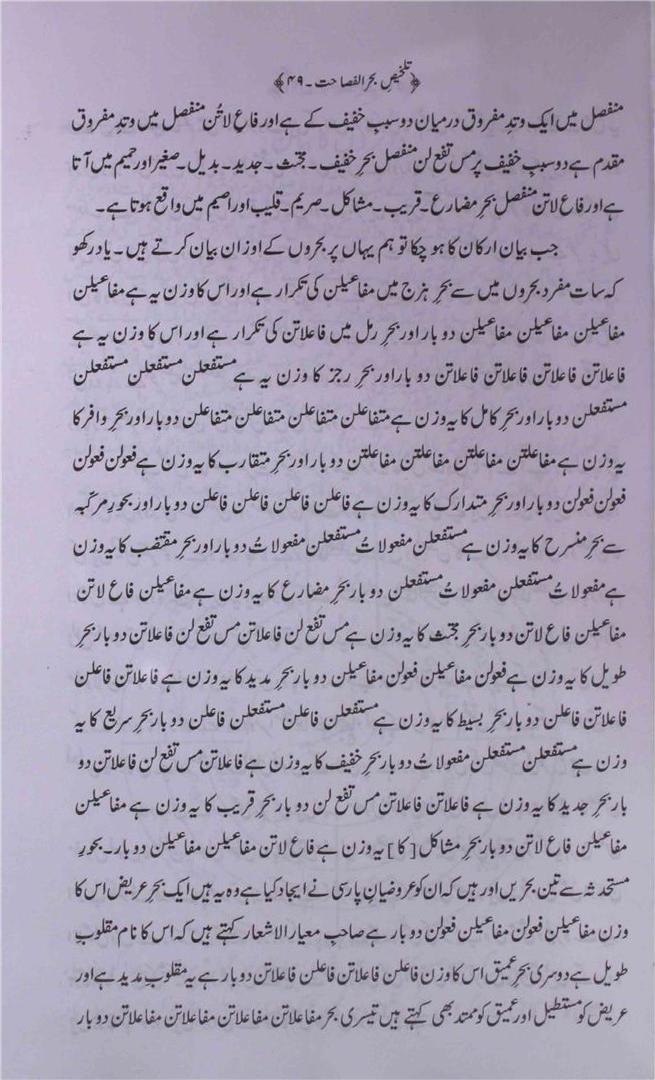 ﴿تلخیصِ بحر الفصاحت۔۴۹﴾
منفصل میں ایک وتدِ مفروق درمیان دو سببِ خفیف کے ہے اور فاعِ لاتُن منفصل میں وتدِ مفروق
مقدم ہے دو سببِ خفیف پر مس تفع لن منفصل بحرِ خفیف۔ مجتث۔ جدید۔ بدیل۔ صغیر اور حمیم میں آتا
ہے اور فاع لاتن منفصل بحرِ مضارع۔ قریب۔ مشاکل۔ صریم۔ قلیب اور اصیم میں واقع ہوتا ہے۔
جب بیان ارکان کا ہو چکا تو ہم یہاں پر بحروں کے اوزان بیان کرتے ہیں۔ یاد رکھو
کہ سات مفرد بحروں میں سے بحرِ ہزج میں مفاعیلن کی تکرار ہے اور اس کا وزن یہ ہے مفاعیلن
مفاعیلن مفاعیلن مفاعیلن دو بار اور بحرِ رمل میں فاعلاتن کی تکرار ہے اور اس کا وزن یہ ہے
فاعلاتن فاعلاتن فاعلاتن فاعلاتن دو بار اور بحرِ رجز کا وزن یہ ہے مستفعلن مستفعلن مستفعلن
مستفعلن دو بار اور بحرِ کامل کا یہ وزن ہے متفاعلن متفاعلن متفاعلن متفاعلن دو بار اور بحرِ وافر کا
یہ وزن ہے مفاعلتن مفاعلتن مفاعلتن مفاعلتن دو بار اور بحرِ متقارب کا یہ وزن ہے فعولن فعولن
فعولن فعولن دو بار اور بحرِ متدارک کا یہ وزن ہے فاعلن فاعلن فاعلن فاعلن دو بار اور بحورِ مرکّبہ
سے بحرِ منسرح کا یہ وزن ہے مستفعلن مفعولاتُ مستفعلن مفعولاتُ دو بار اور بحرِ مقتضب کا یہ وزن
ہے مفعولاتُ مستفعلن مفعولاتُ مستفعلن دو بار بحرِ مضارع کا یہ وزن ہے مفاعیلن فاع لاتن
مفاعیلن فاع لاتن دو بار بحرِ مجتث کا یہ وزن ہے مس تفع لن فاعلاتن مس تفع لن فاعلاتن دو بار بحرِ
طویل کا یہ وزن ہے فعولن مفاعیلن فعولن مفاعیلن دو بار بحرِ مدید کا یہ وزن ہے فاعلاتن فاعلن
فاعلاتن فاعلن دو بار بحرِ بسیط کا یہ وزن ہے مستفعلن فاعلن مستفعلن فاعلن دو بار بحرِ سریع کا یہ
وزن ہے مستفعلن مستفعلن مفعولاتُ دو بار بحرِ خفیف کا یہ وزن ہے فاعلاتن مس تفع لن فاعلاتن دو
بار بحرِ جدید کا یہ وزن ہے فاعلاتن فاعلاتن مس تفع لن دو بار بحرِ قریب کا یہ وزن ہے مفاعیلن
مفاعیلن فاع لاتن دو بار بحرِ مشاکل [کا] یہ وزن ہے فاع لاتن مفاعیلن مفاعیلن دو بار۔ بحورِ
مستحدثہ سے تین بحریں اور ہیں کہ ان کو عروضیانِ پارسی نے ایجاد کیا ہے وہ یہ ہیں ایک بحرِ عریض اس کا
وزن مفاعیلن فعولن مفاعیلن فعولن دو بار ہے صاحبِ معیار الاشعار کہتے ہیں کہ اس کا نام مقلوبِ
طویل ہے دوسری بحرِ عمیق اس کا وزن فاعلن فاعلاتن فاعلن فاعلاتن دو بار ہے یہ مقلوبِ مدید ہے اور
عریض کو مستطیل اور عمیق کو ممتد بھی کہتے ہیں تیسری بحر مفاعلاتن مفاعلاتن مفاعلاتن مفاعلاتن دو بار